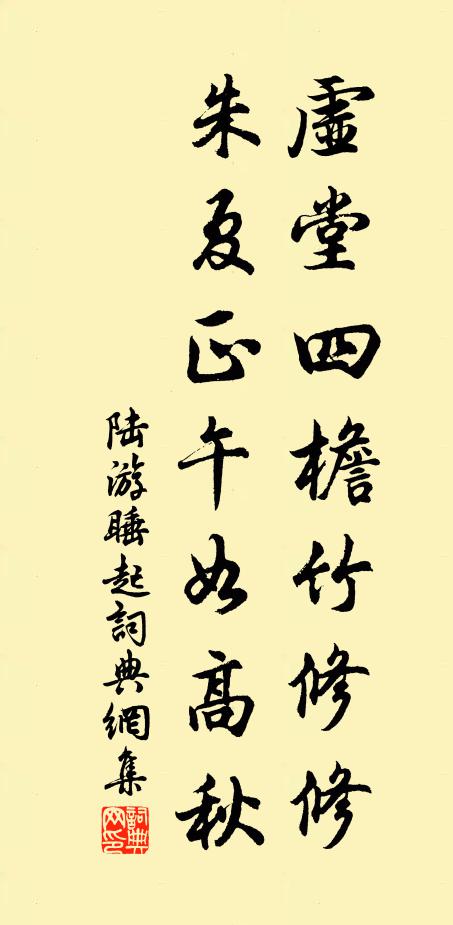 虛堂四檐竹修修
朱夏正午如高秋
陆游睡起詞典網集
詞典网印